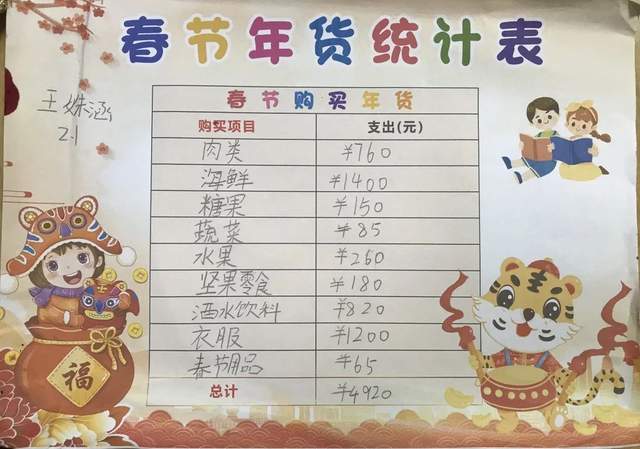 春节年货统计表
王姝涵
2.1
春节购买年货
购买项目 支出(元)
肉类 ¥760
海鲜 ¥1400
糖果 ¥150
蔬菜 ¥85
水果 ¥260
坚果零食 ¥180
酒水饮料 ¥820
衣服 ¥1200
春节用品 ¥65
总计 ¥4920
福